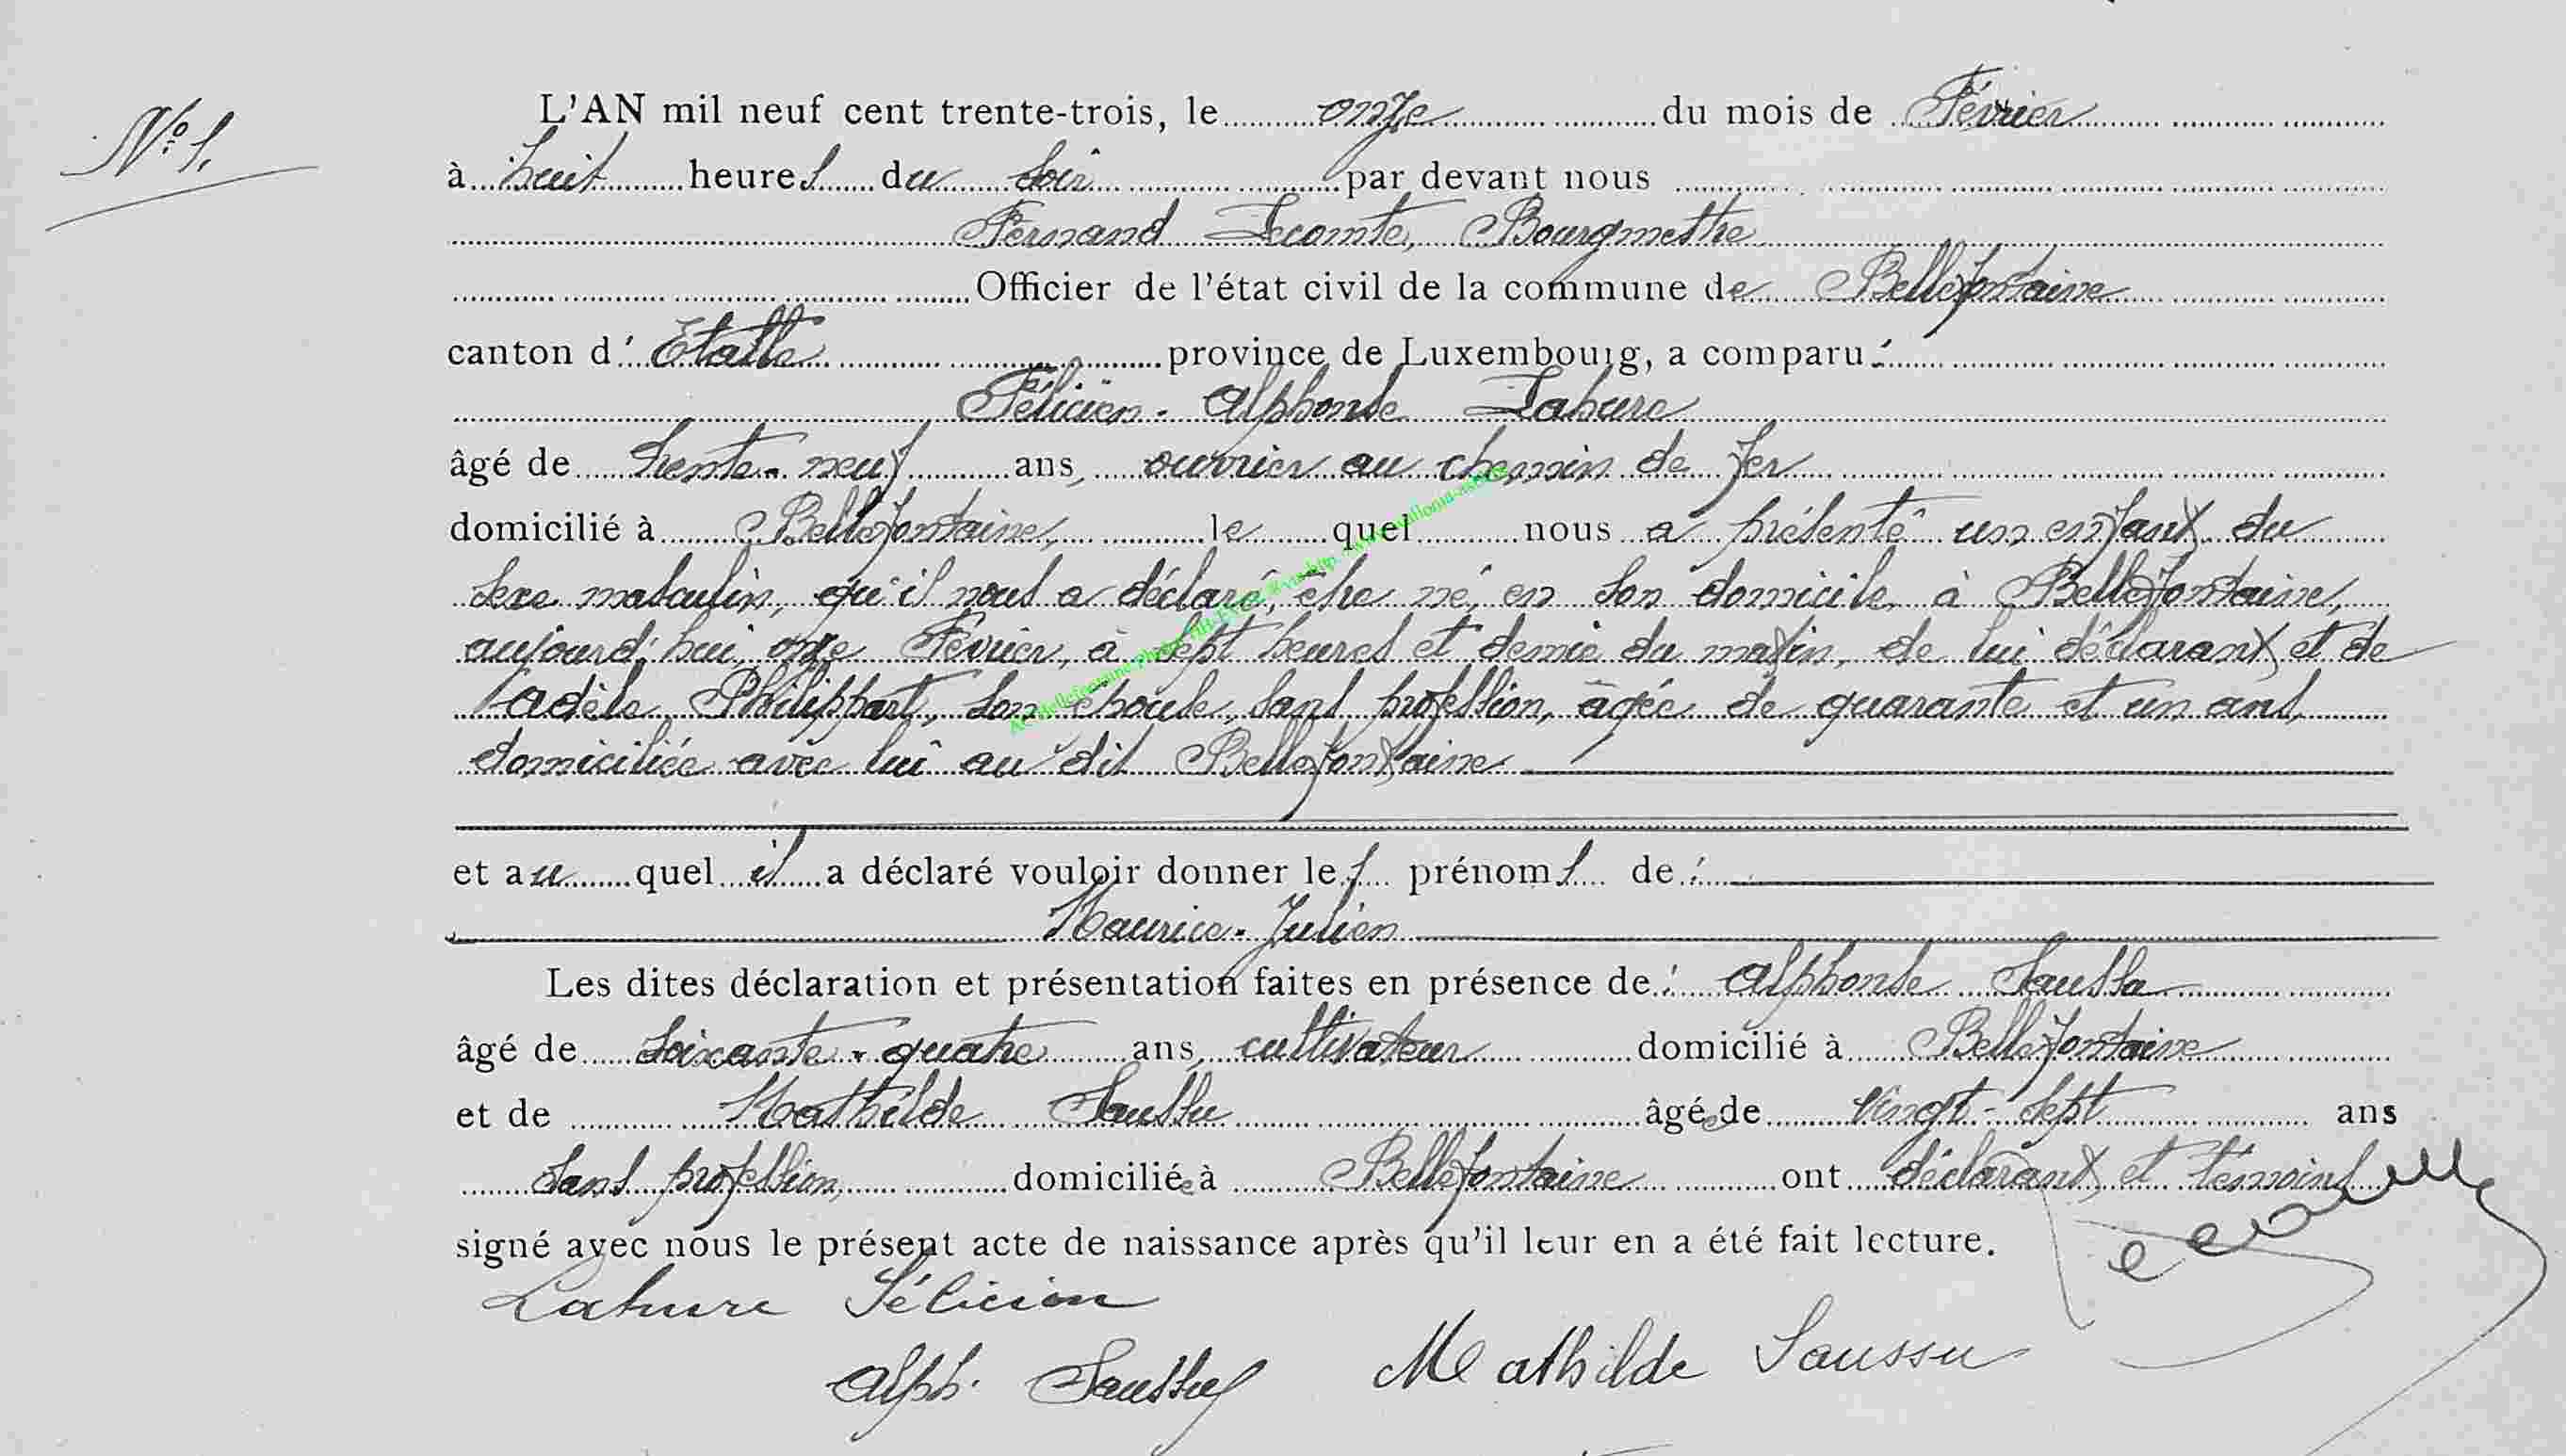 N° 1.
L'AN mil neuf cent trente-trois, le onze du mois de Février
à huit heures du soir par devant nous
Fernand Lecomte, Bourgmestre
Officier de l'état civil de la commune de Bellefontaine
canton d'Etalle province de Luxembourg, a comparu :
Félicien-Alphonse Lahure
âgé de trente-neuf ans, ouvrier au chemin de fer
domicilié à Bellefontaine, le quel nous a présenté un enfant du
sexe masculin, qu'il nous a déclaré, être né, en son domicile, à Bellefontaine,
aujourd'hui, onze Février, à sept heures et demie du matin, de lui déclarant et de
Adèle Philippart, son épouse, sans profession, âgée de quarante et un ans,
domiciliée avec lui au dit Bellefontaine
et au quel il a déclaré vouloir donner les prénoms de :
Maurice-Julien
Les dites déclaration et présentation faites en présence de : Alphonse Saussu
âgé de soixante-quatre ans, cultivateur domicilié à Bellefontaine
et de Mathilde Saussu âgée de vingt-sept ans
sans profession, domiciliée à Bellefontaine ont déclarant, et témoins
signé avec nous le présent acte de naissance après qu'il leur en a été fait lecture.
Lahure Félicien
Alph. Saussu Mathilde Saussu